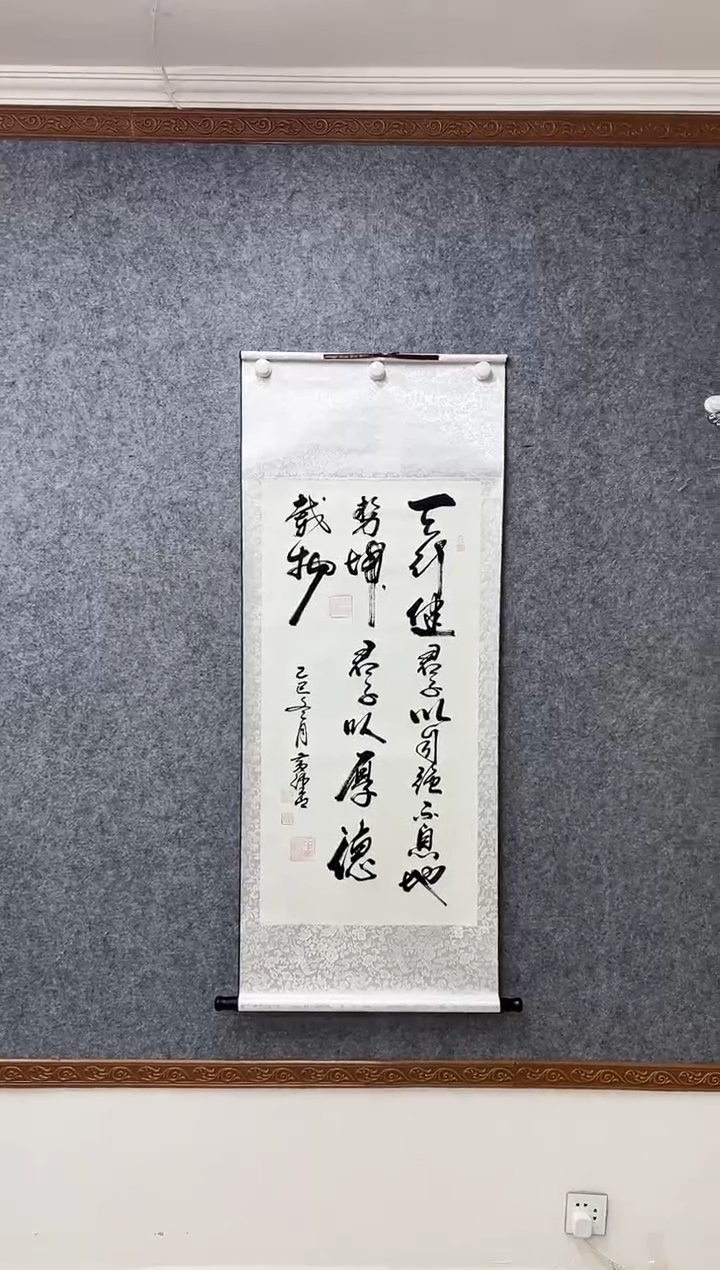 天行健君子以自强不息地
势坤君子以厚德
载物
乙巳冬月